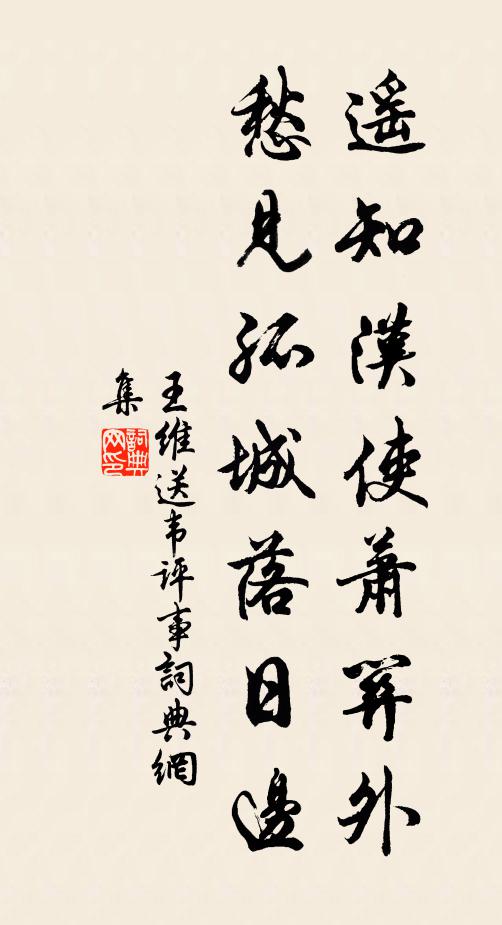 遥知漢使蕭關外
愁見孤城落日邊
王維送韦評事詞典網
集
詞典网印